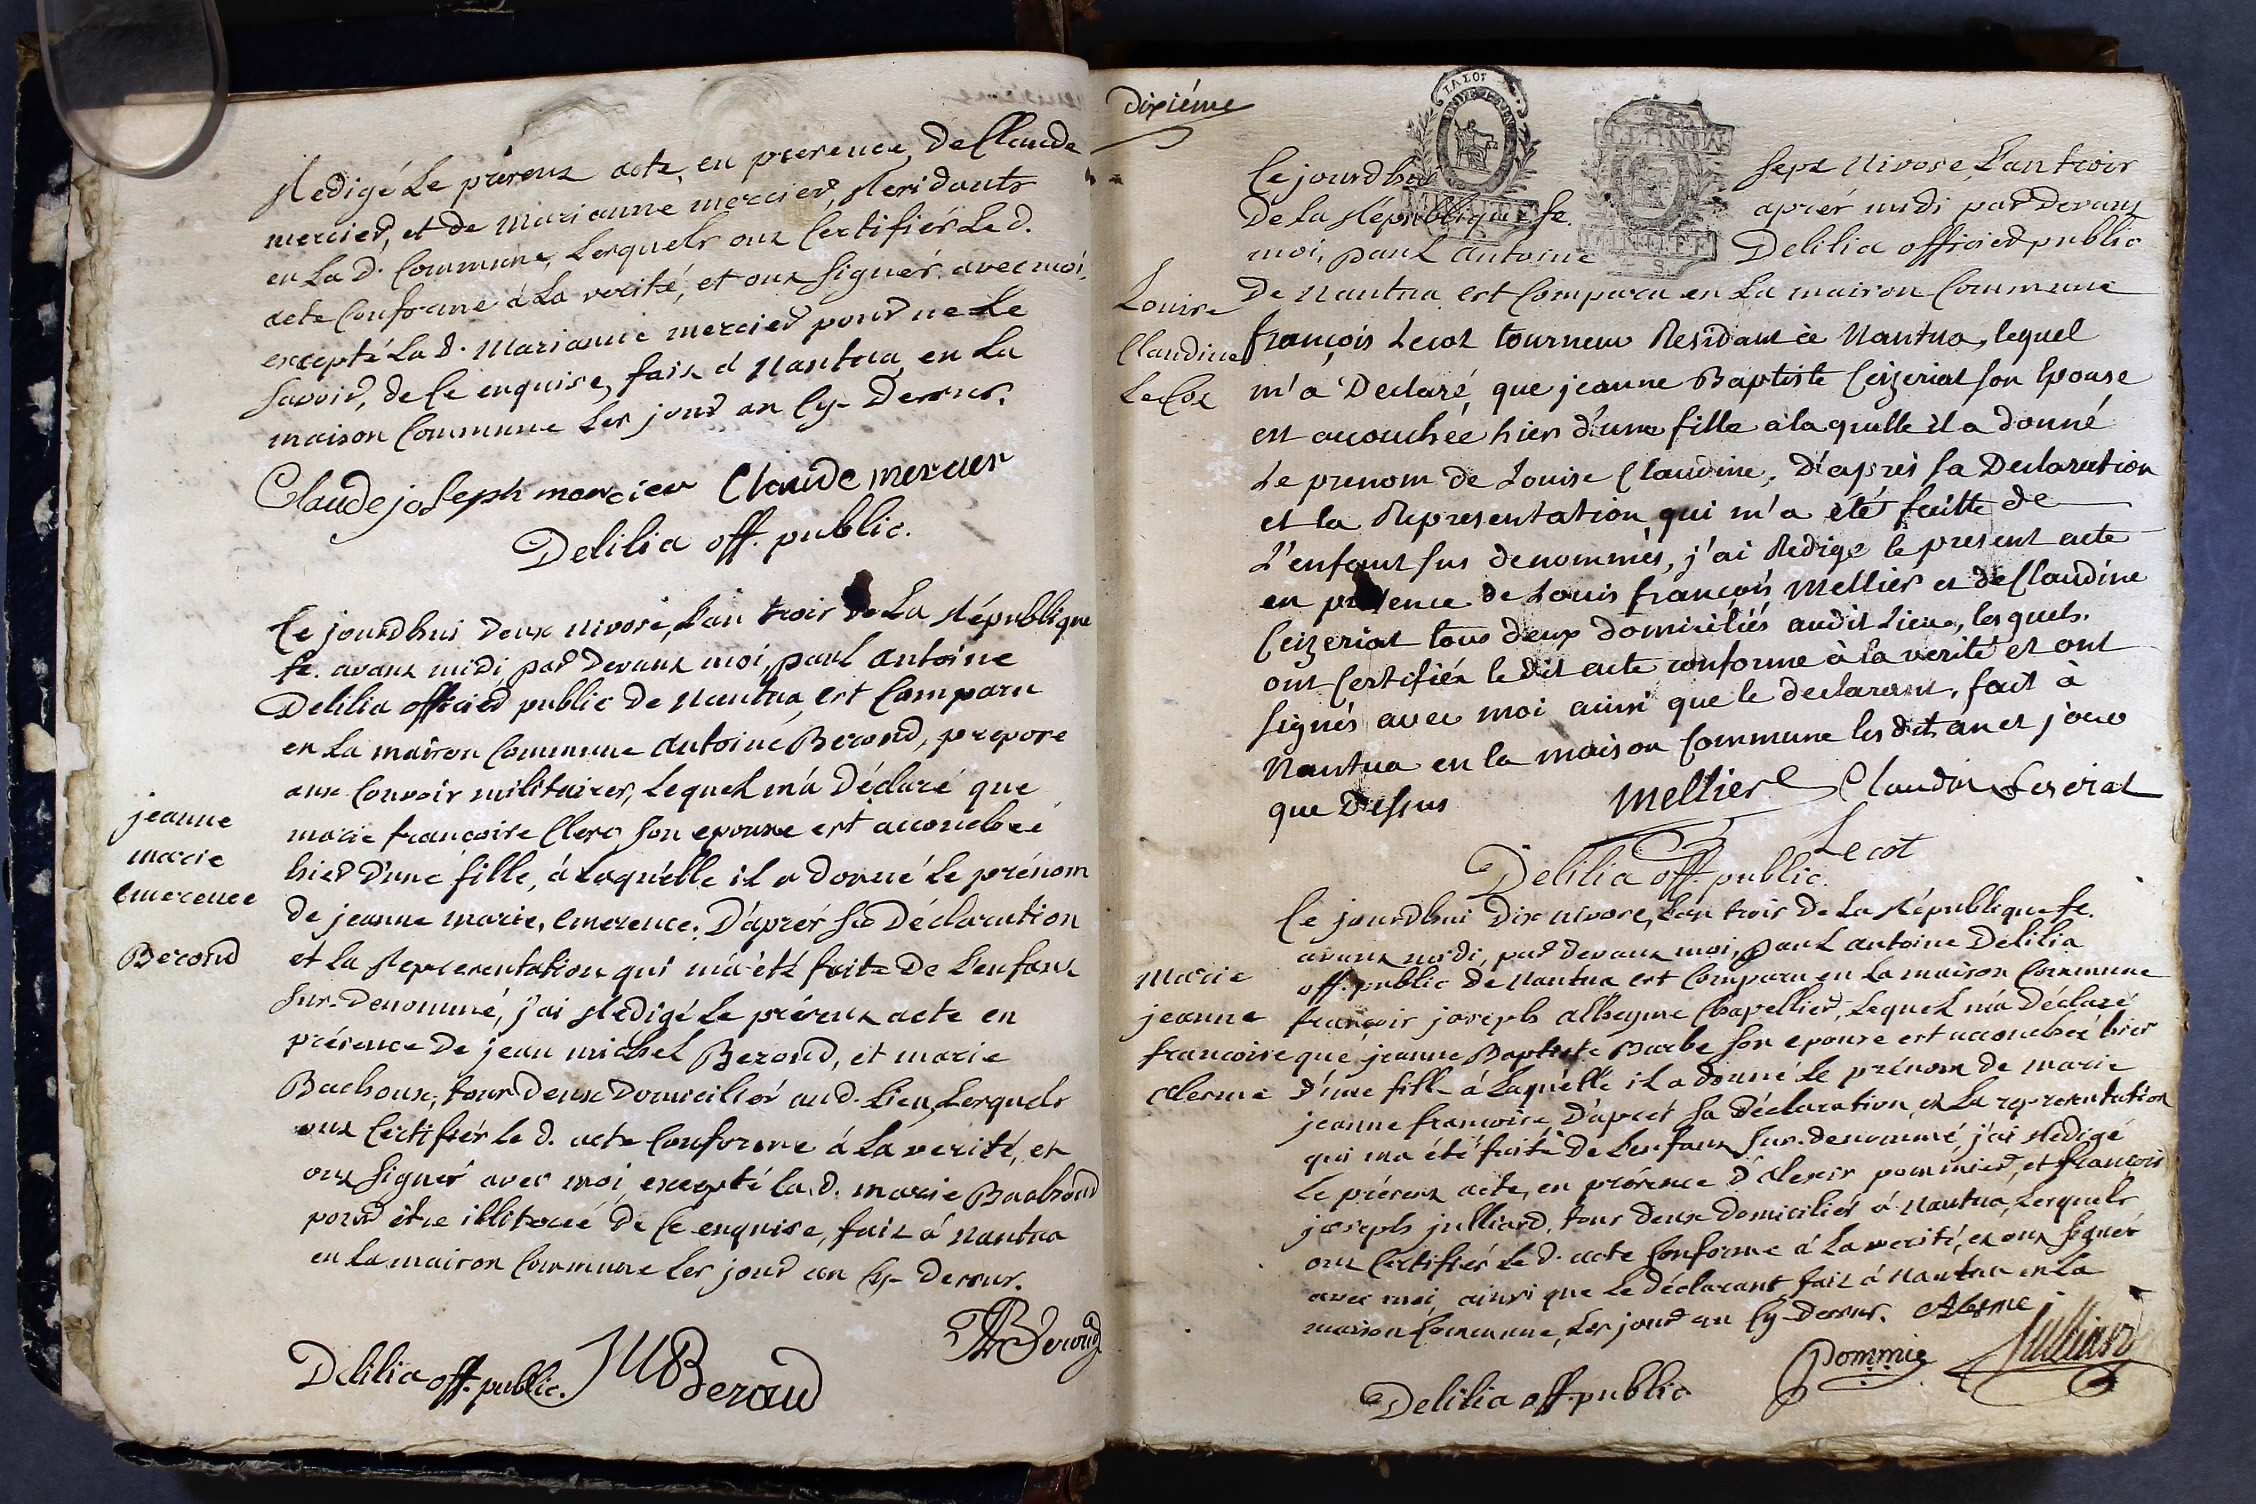 Redigé Le présent acte, en présence, De Claude
mercier, et de Marianne mercier, Residants
en La d. Commune, Lesquels ont Certifiés Le d.
acte Conforme à La verité, et ont Signés avec moi,
excepté La d. Marianne mercier pour ne Le
Savoir, de Ce enquise, fait à Nantua en La
maison Commune Les jour an Cy-Dessus.
Claude joseph mercier Claude mercier
Delilia off. public.
jeanne
marie
emerence
Berond
Ce jourdhui deux nivose, L'an trois De La République
fe. avant midi par Devant moi, paul antoine
Delilia officier public de Nantua, est Comparu
en La maison Commune antoine Berond, prepose
aux Convois militaires, Lequel m'a Déclaré que
marie francoise Clerc son epouse est accouchée
hier D'une fille, à Laquelle il a donné Le prénom
de jeanne marie, emerence. D'après sa Déclaration
et La Representation qui m'a été faite De L'enfant
Sus-Denommé, j'ai Redigé Le présent acte en
présence De jean michel Berond, et marie
Bachoux, tous Deux Domiciliés aud. Lieu, Lesquels
ont Certifiés Le d. acte Conforme à La verité, et
ont Signés avec moi excepté La d. marie
pour être illiterée De Ce enquise, fait à Nantua
en La maison Commune Les jour an Cy-Dessus.
Berond
Delilia off. public. JM Beroud
Dixiéme
LA LOI
Ce jourdhui Sept Nivose L'an trois
De La République fe. après midi par Devant
moi, paul antoine Delilia officier public
De Nantua est Comparu en La maison Commune
Louise
Claudine
LeCot
françois Lecot tourneur Residant à Nantua, lequel
m'a Declaré que jeanne Baptiste Ceizeriat son Epouse
est accouchée hier d'une fille a laquelle il a donné
Le prenom de Louise Claudine, D'après sa Declaration
et la Representation qui m'a été faitte de
L'enfant sus denommés, j'ai Redigé le present acte
en presence de Louis françois Mellier et de Claudine
Ceizeriat tous deux domiciliés audit Lieu, lesquels
ont Certifiés le dit acte conforme à la verité et ont
signés avec moi ainsi que le declarant, fait à
Nantua en la maison Commune les dits an et jour
que Dessus Mellier Claudin Seseriat
Lecot
Delilia off. public.
Ce jourdhui Dix nivose, L'an trois De La République fe.
avant midi, par devant moi, paul antoine Delilia
off. public de Nantua est Comparu en La maison Commune
marie
jeanne
francoise
alesme
françois joseph alesme Chapellier, Lequel m'a Déclaré
que jeanne Baptiste Barbe son epouse est accouchée hier
d'une fille à Laquelle il a donné Le prénom de marie
jeanne francoise, D'après sa déclaration et La representation
qui m'a été faite De L'enfant Sus-denommé j'ai Redigé
Le présent acte, en présence d'alexis pommier, et francois
joseph julliard, tous deux Domiciliés à Nantua, Lesquels
ont Certifiés Le d. acte Conforme à La verité, et ont Signés
avec moi, ainsi que Le déclarant, fait à Nantua en La
maison Commune, Les jour an Cy-Dessus. alesme
Pommie Julliard
Delilia off. public